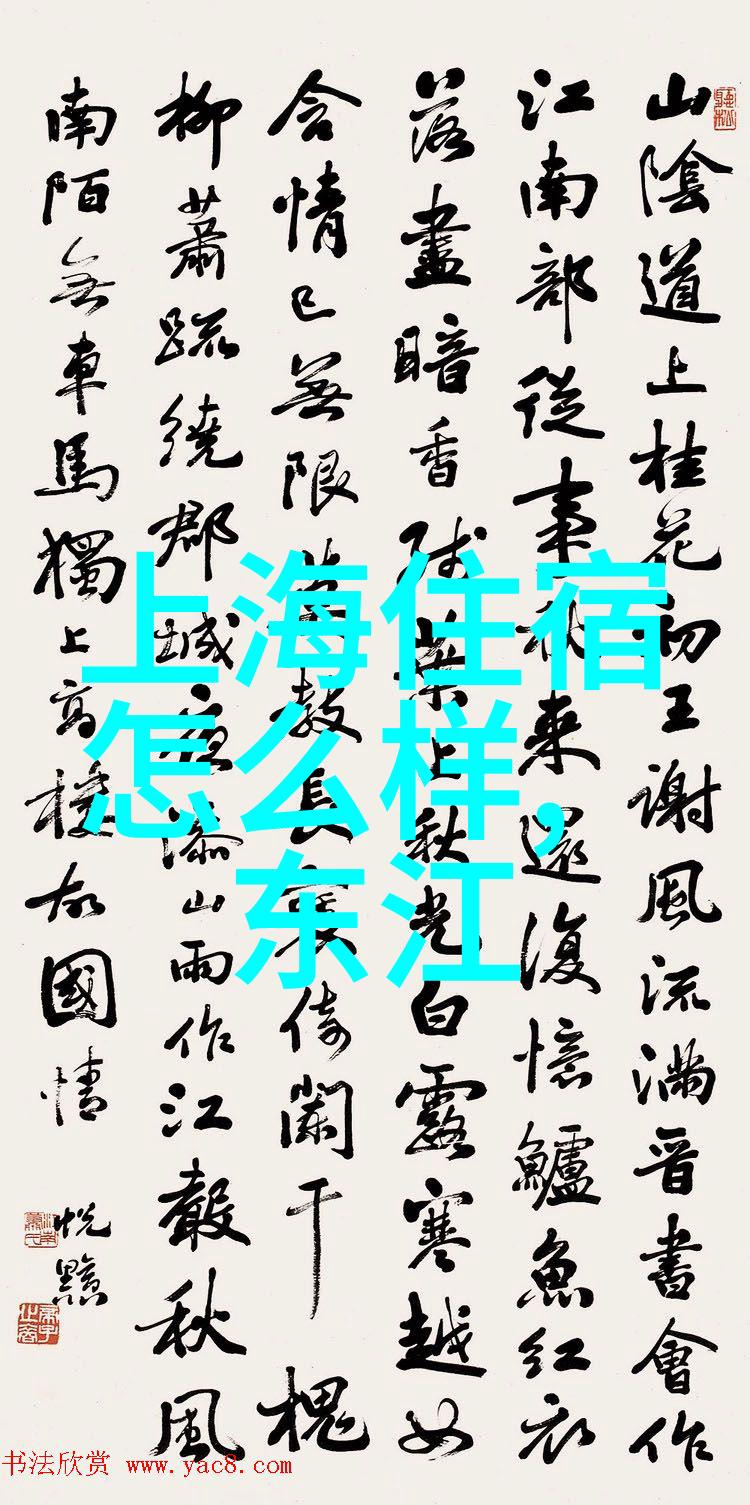 山陰道上桂花初王謝風流滿晉書會作
江南部從事秋來還復憶鱸魚紅衣
落盡暗香殘葉上秋光白露寒越女
含情已無限莫教長袖倚闌干 槐
柳蕭疏繞郡城夜添山雨作江聲秋風
南陌無車馬獨上高樓故國情
上海住宿
怎么样,
东江
书法欣赏 www.yac8.com